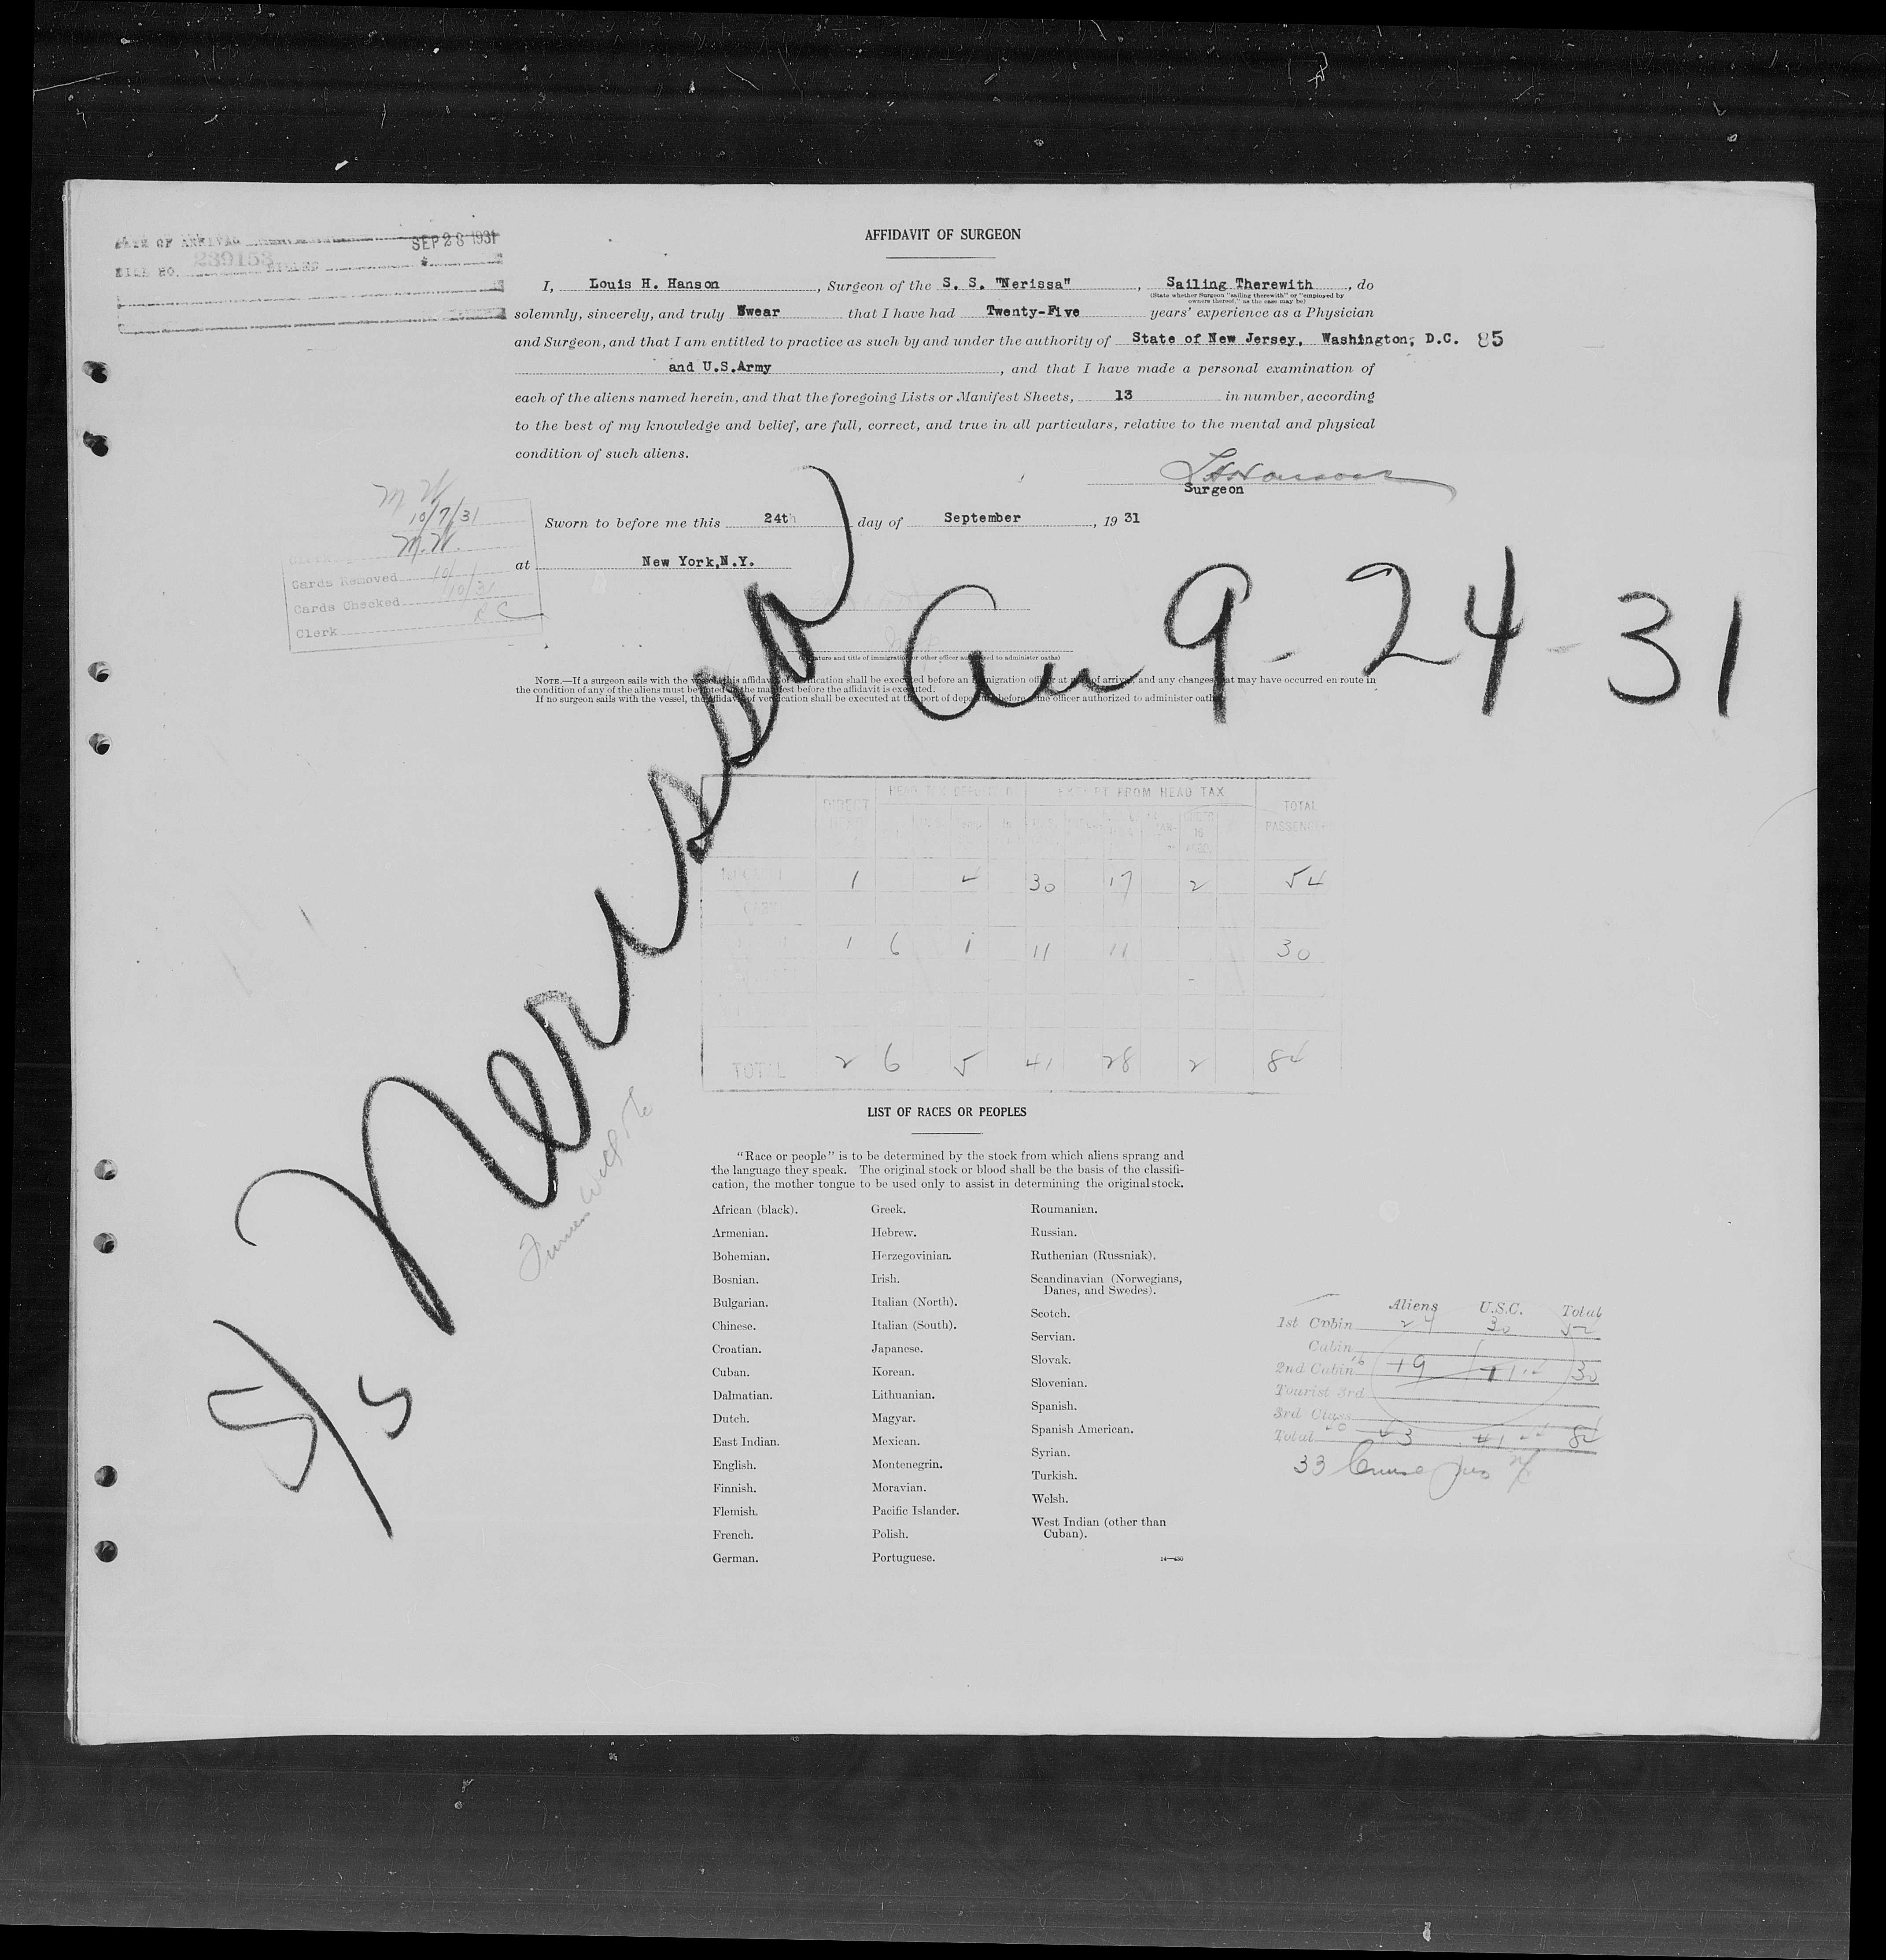 DATE OF ARRIVAL SEP 28 1931
BILL NO. 239153
AFFIDAVIT OF SURGEON
I, Louis H. Hanson, Surgeon of the S. S. "Nerissa", Sailing Therewith, do
(State whether Surgeon "sailing therewith" or "employed by
owners thereof," as the case may be)
solemnly, sincerely, and truly Swear that I have had Twenty-Five years' experience as a Physician
and Surgeon, and that I am entitled to practice as such by and under the authority of State of New Jersey, Washington, D.C. 85
and U.S.Army, and that I have made a personal examination of
each of the aliens named herein, and that the foregoing Lists or Manifest Sheets, 13 in number, according
to the best of my knowledge and belief, are full, correct, and true in all particulars, relative to the mental and physical
condition of such aliens.
L H Hanson
Surgeon
Sworn to before me this 24th day of September, 19 31
at New York,N.Y.
M W
10/7/31
M.W.
Cards Removed 10/
Cards Checked 10/31
Clerk R C
(Signature and title of immigration or other officer authorized to administer oaths)
NOTE.—If a surgeon sails with the vessel, this affidavit of verification shall be executed before an immigration officer at port of arrival, and any changes that may have occurred en route in
the condition of any of the aliens must be noted on the manifest before the affidavit is executed.
If no surgeon sails with the vessel, the affidavit of verification shall be executed at the port of departure before some officer authorized to administer oaths.
S/S Nerissa
Arr 9-24-31
DIRECT HEAD TAX EXEMPT FROM HEAD TAX TOTAL
PASSENGERS
1 4 30 17 2 54
1 6 1 11 11 30
TOTAL 2 6 5 41 28 2 84
LIST OF RACES OR PEOPLES
"Race or people" is to be determined by the stock from which aliens sprang and
the language they speak. The original stock or blood shall be the basis of the classifi-
cation, the mother tongue to be used only to assist in determining the original stock.
African (black).
Armenian.
Bohemian.
Bosnian.
Bulgarian.
Chinese.
Croatian.
Cuban.
Dalmatian.
Dutch.
East Indian.
English.
Finnish.
Flemish.
French.
German.
Greek.
Hebrew.
Herzegovinian.
Irish.
Italian (North).
Italian (South).
Japanese.
Korean.
Lithuanian.
Magyar.
Mexican.
Montenegrin.
Moravian.
Pacific Islander.
Polish.
Portuguese.
Roumanian.
Russian.
Ruthenian (Russniak).
Scandinavian (Norwegians,
Danes, and Swedes).
Scotch.
Servian.
Slovak.
Slovenian.
Spanish.
Spanish American.
Syrian.
Turkish.
Welsh.
West Indian (other than
Cuban).
Aliens U.S.C. Total
1st Cabin 24 30 54
Cabin
2nd Cabin 19 11 30
Tourist 3rd
3rd Class
Total 43 41 84
33 Cruise